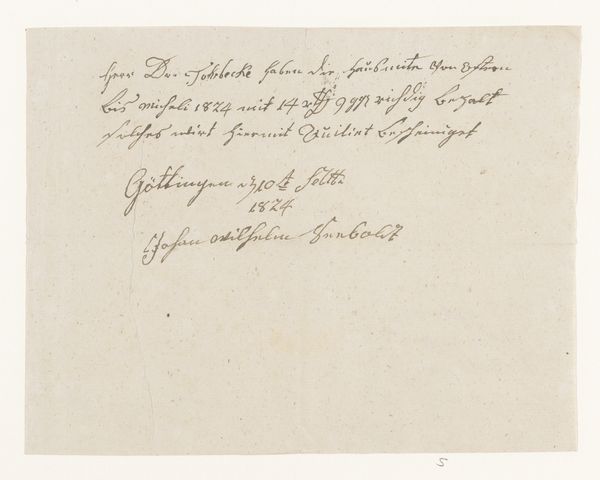 Herr Dr. Tölebecke haben die hausmite von Ostern
bis micheli 1824 mit 14 rth 9 ggr richdig bezalt
solches wirt hiermit Quitiert bescheiniget
Göttingen d 10 t
1824
Johan Wilhelm Seeboldt
5